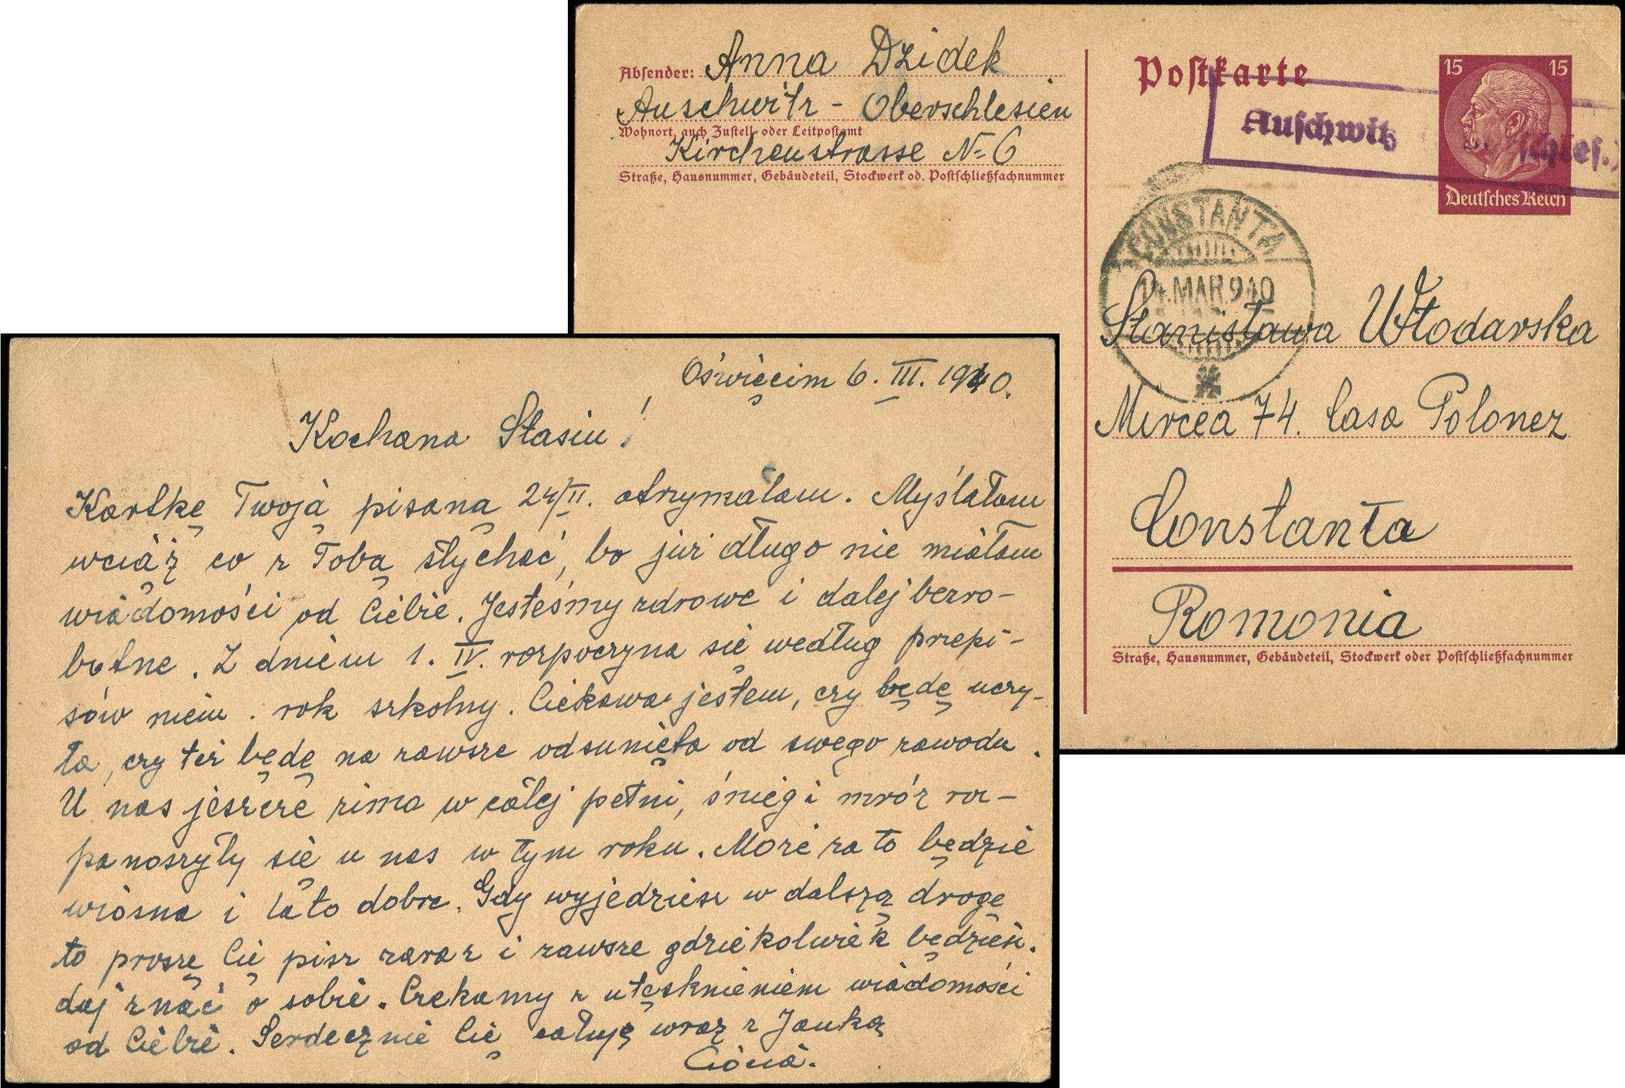 Absender: Anna Dzidek
Auschwitz - Oberschlesien
Wohnort, auch Zustell- oder Leitpostamt
Kirchenstrasse N=6
Straße, Hausnummer, Gebäudeteil, Stockwerk od. Postschließfachnummer
Postkarte
15 15
Deutsches Reich
Auschwitz
schles.)
CONSTANTA
14.MAR.940
Stanisława Włodarska
Mircea 74. Casa Polonez
Constanta
Romonia
Straße, Hausnummer, Gebäudeteil, Stockwerk oder Postschließfachnummer
Oświęcim 6. III. 1940.
Kochana Stasiu!
Kartkę Twoją pisaną 24/II. otrzymałam. Myślałam
wciąż co z Tobą słychać, bo już długo nie miałam
wiadomości od Ciebie. Jesteśmy zdrowe i dalej bezro-
botne. Z dniem 1. IV. rozpoczyna się według przepi-
sów niem. rok szkolny. Ciekawa jestem, czy będę uczy-
ła, czy też będę na zawsze odsunięta od swego zawodu.
U nas jeszcze zima w całej pełni, śnieg i mróz roz-
panoszyły się u nas w tym roku. Może za to będzie
wiosna i lato dobre. Gdy wyjedziesz w dalszą drogę
to proszę Cię pisz zaraz i zawsze gdziekolwiek będziesz.
daj znać o sobie. Czekamy z utęsknieniem wiadomości
od Ciebie. Serdecznie Cię całuję wraz z Janką
Ciocia.